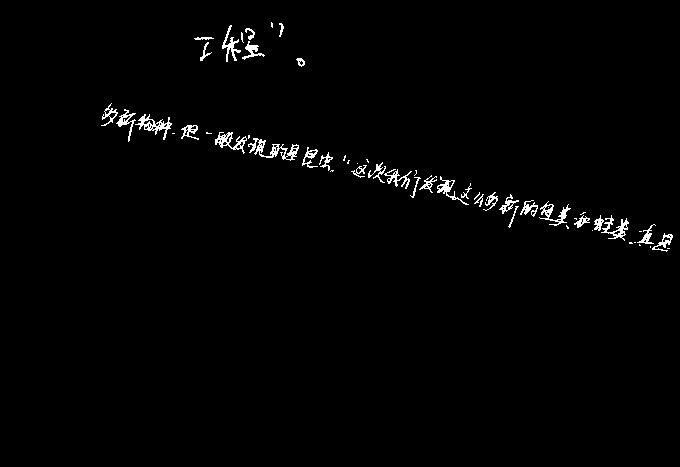 工程”。
多新物种.但一般发现的是昆虫.“这次我们发现这么多新的鱼类和蛙类.真是